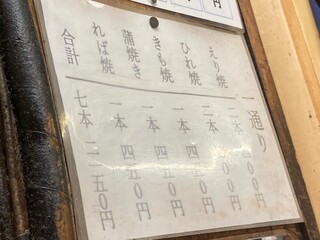 一通り
えり焼 二本 四〇〇円
ひれ焼 二本 四〇〇円
きも焼 一本 四五〇円
蒲焼き 一本 四五〇円
れば焼 一本 四五〇円
合計 七本 二一五〇円
円